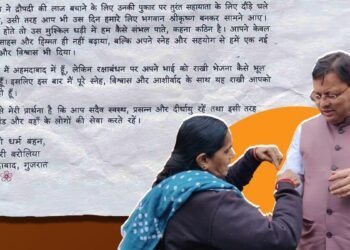 ने द्रौपदी की लाज बचाने के लिए उनकी पुकार पर तुरंत सहायता के लिए दौड़े चले
उसी तरह आप भी उस दिन हमारे लिए भगवान श्रीकृष्ण बनकर सामने आए।
होते तो उस मुश्किल घड़ी में हम कैसे संभल पाते, कहना कठिन है। आपने केवल
साहस और हिम्मत ही नहीं बढ़ाया, बल्कि अपने स्नेह और सहयोग से हमें एक नई
मैं अहमदाबाद में हूँ, लेकिन रक्षाबंधन पर अपने भाई को राखी भेजना कैसे भूल
हूँ। इसलिए इस बार मैं पूरे स्नेह, विश्वास और आशीर्वाद के साथ यह राखी आपको
ही हूँ।
से मेरी प्रार्थना है कि आप सदैव स्वस्थ, प्रसन्न और दीर्घायु रहें तथा इसी तरह
और वहाँ के लोगों की सेवा करते रहें।
धर्म बहन,
बरोलिया
गुजरात